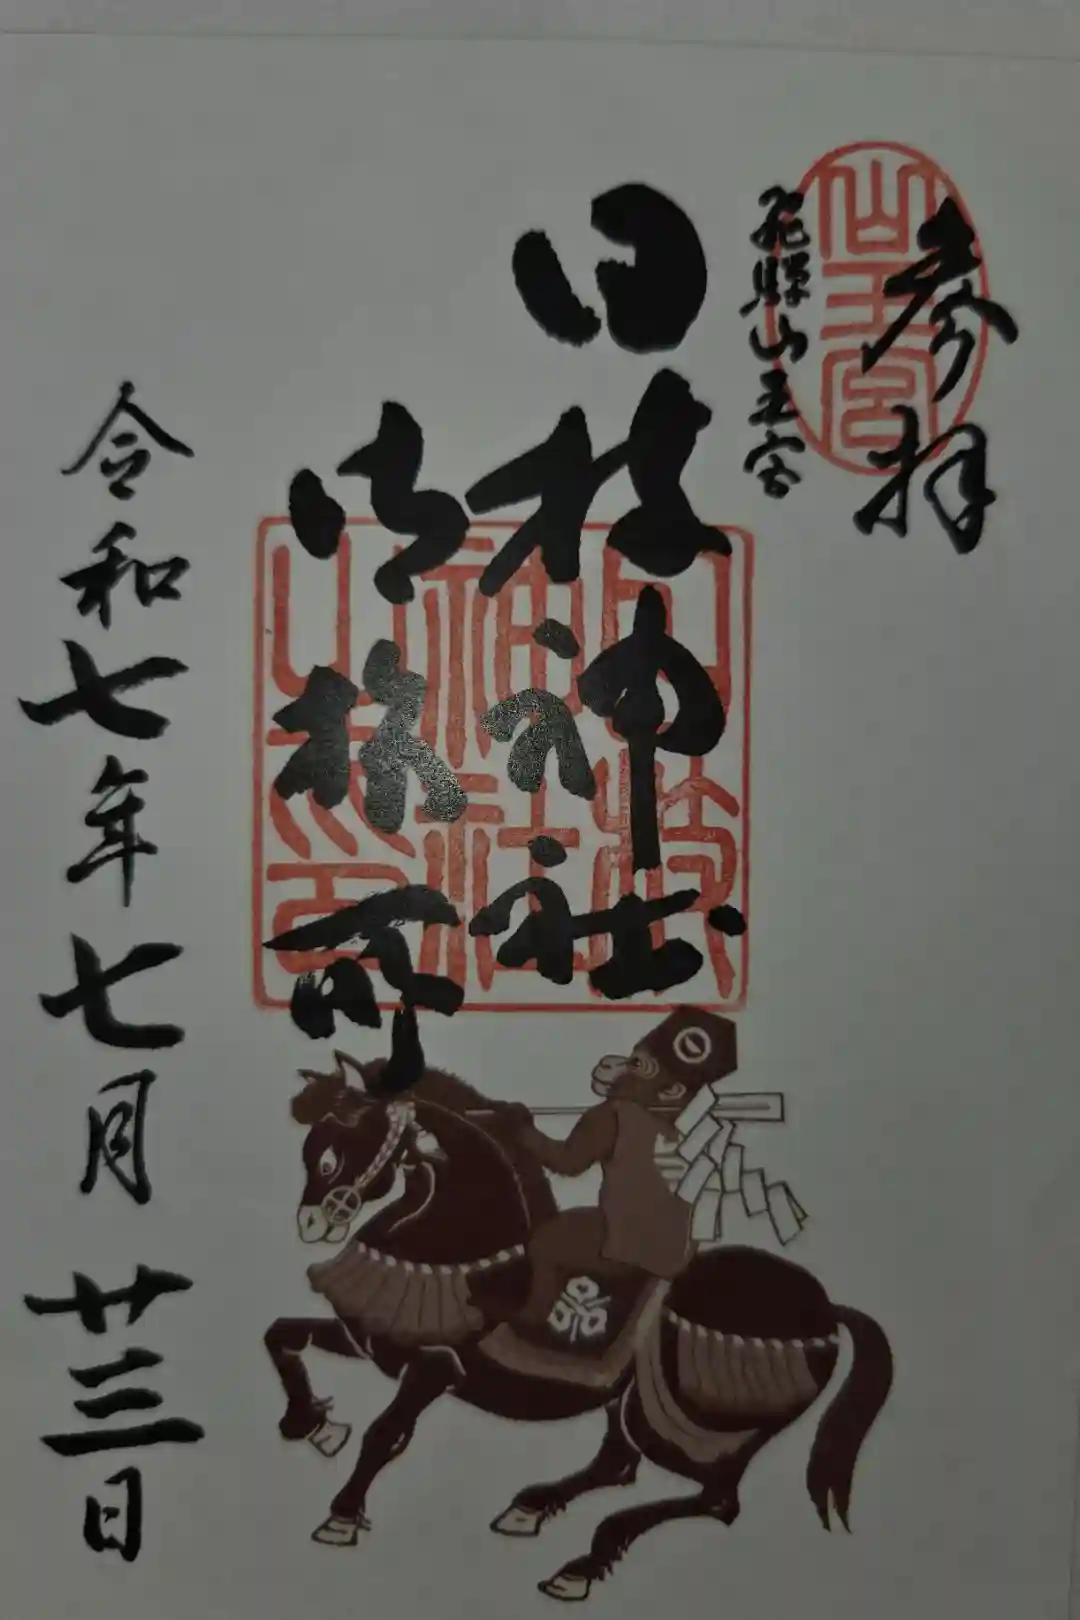 参拝
飛騨山王宮
日枝神社
御旅所
令和七年七月廿三日
山王宮
日枝
神社
之印